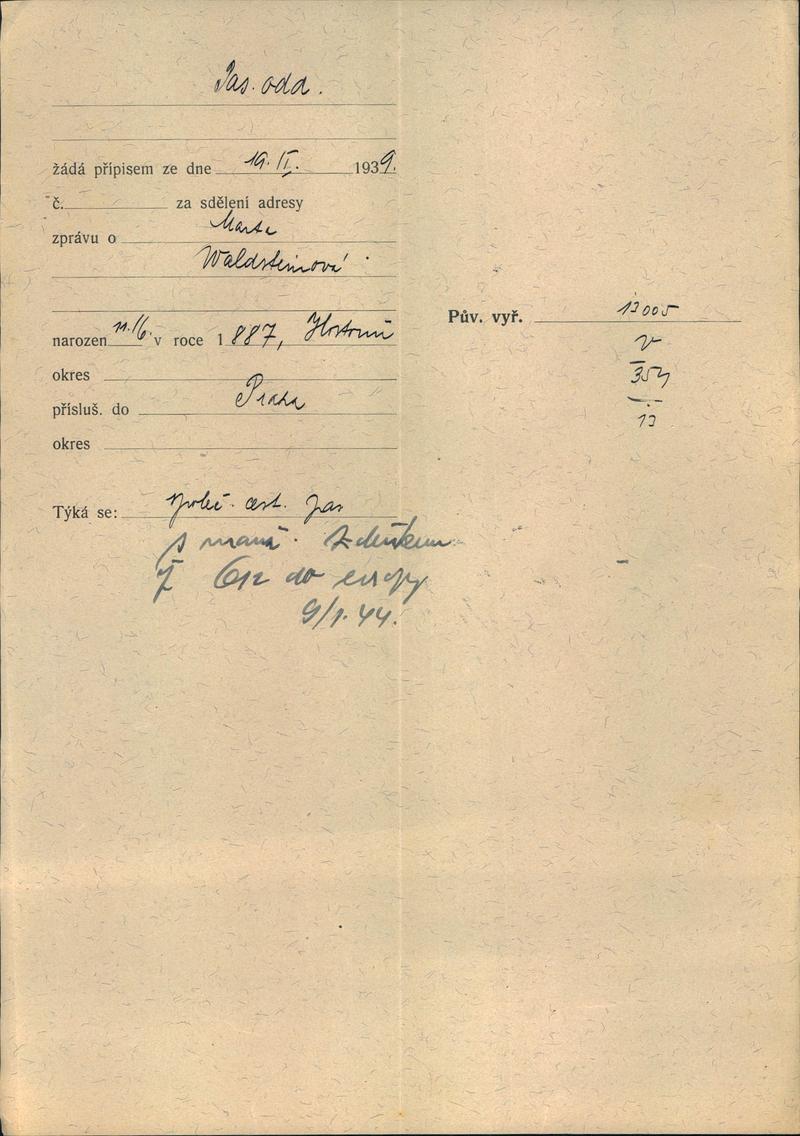 Pas. odd.
žádá přípisem ze dne 19. II. 1939.
č. za sdělení adresy
zprávu o Marta
Waldsteinová
narozen 11./6. v roce 1887,
okres
přísluš. do Praha
okres
Týká se: společ. cest. pas
s manž. Zdeňkem
do evropy
9/1.44.
Pův. vyř. 13005
V
354
13